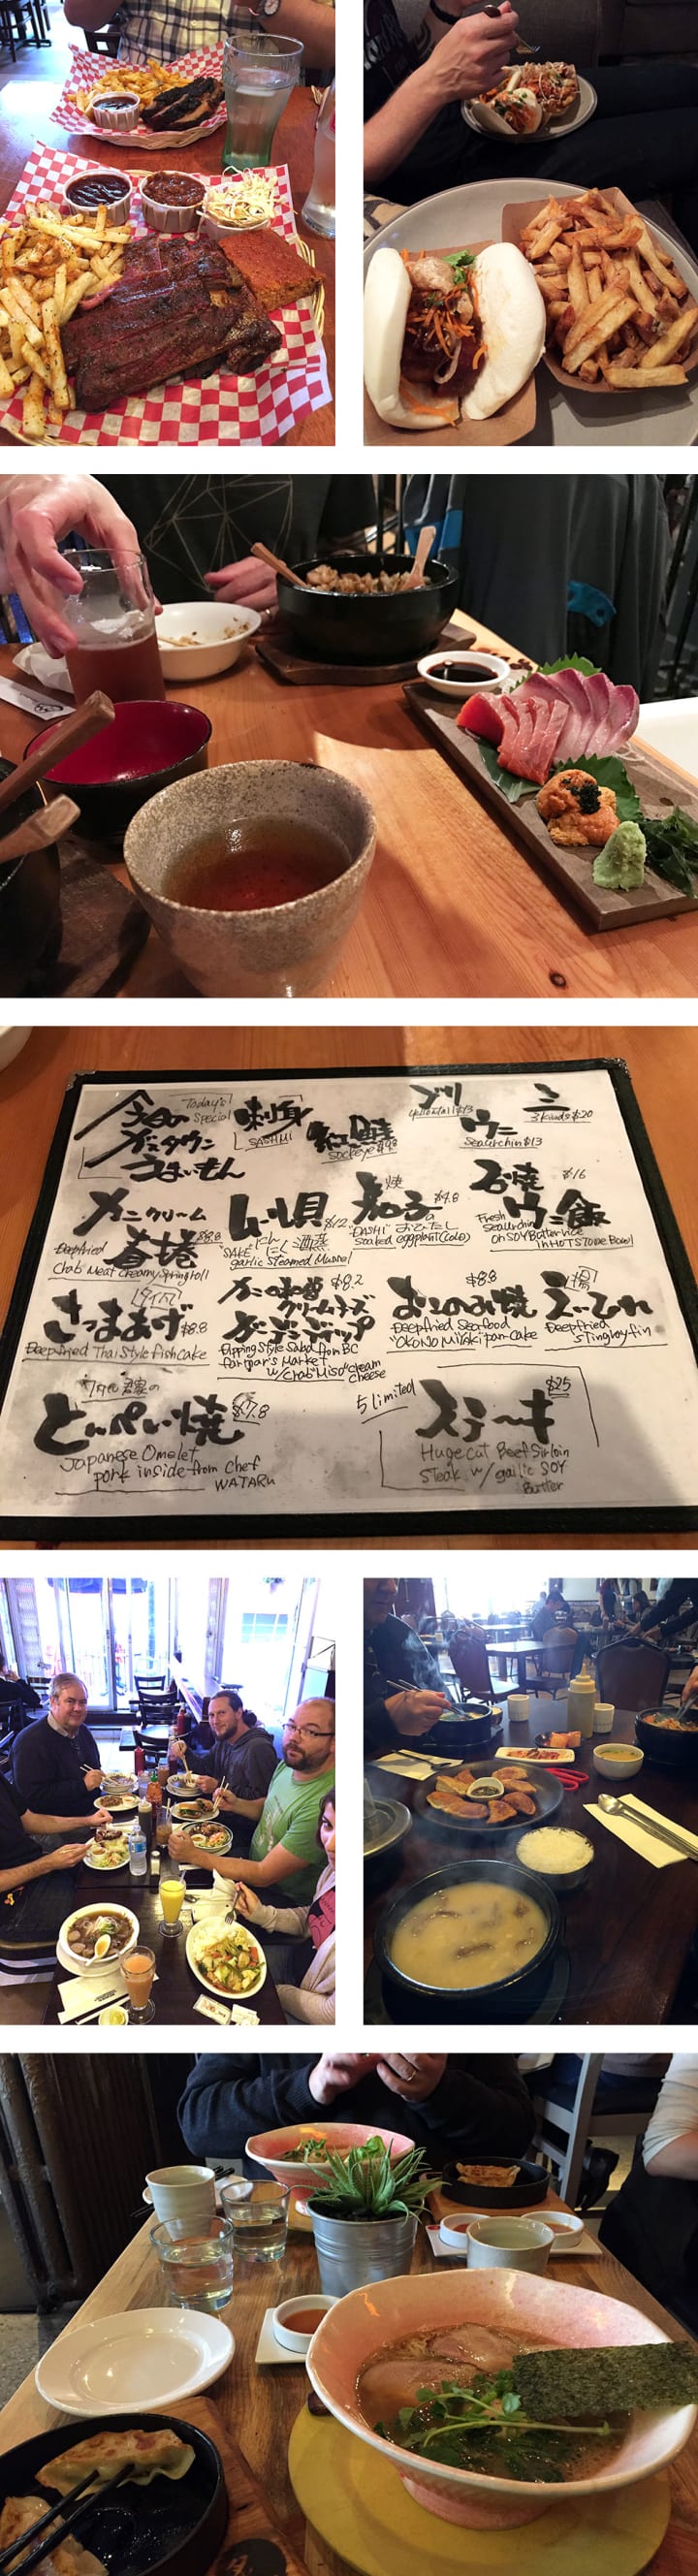 今日の
Today's
Special
ガスタウン
うまいもん
刺身
SASHIMI
紅鮭
Sockeye $9.8
ブリ
yellowtail $13
ウニ
Seaurchin $13
三
3 kinds $20
カニクリーム
春捲 $8.8
Deepfried
Crab Meat Creamy Springroll
ムール貝 $12
にんにく酒蒸
"SAKE"
garlic Steamed Mussel
焼
茄子 $4.8
"DASHI" おひたし
Soaked eggplant (Cold)
石焼 $16
ウニ飯
Fresh
Seaurchin
on SOY Butter rice
in HOT STONE Bowl
タイ風
さつまあげ $8.8
Deepfried Thai Style fish Cake
カニの味噌 $8.2
クリームチーズ
ガーデンディップ
Dipping Style Salad from BC
farmar's Market
w/ Crab "Miso" cream
cheese
おこのみ焼 $8.8
Deepfried Seafood
"OKONOMIYAKI" pan-cake
えいひれ
Deepfried
Stingray fin
とんぺい焼 $7.8
Japanese Omelet
pork inside from Chef
WATARU
5 limited
ステーキ $25
Huge cut Beef Sirloin
Steak w/ garlic SOY
Butter